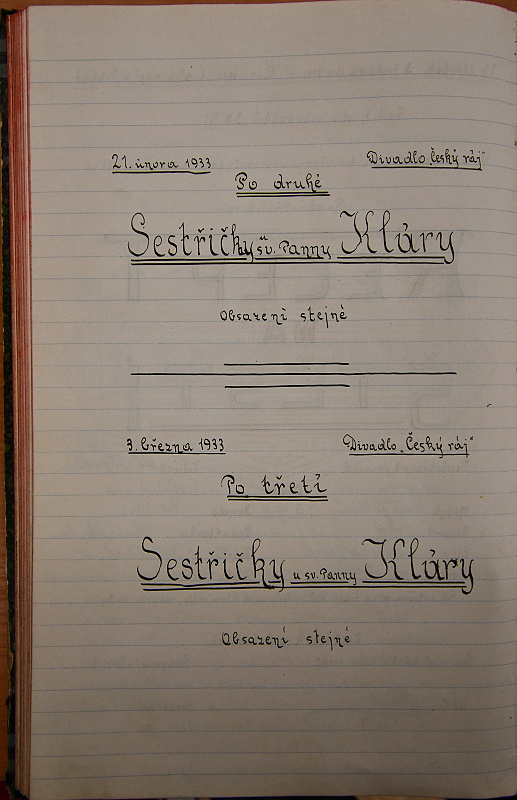 21. února 1933 Divadlo „Český ráj"
Po druhé
Sestřičky u sv. Panny Kláry
Obsazení stejné
3. března 1933 Divadlo „Český ráj"
Po třetí
Sestřičky u sv. Panny Kláry
Obsazení stejné